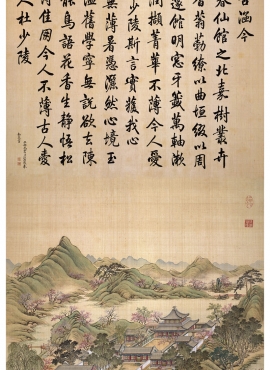 古涵今
春仙館之北嘉樹叢卉
香蓊葧繚以曲垣綴以周
邃館明窗牙籤萬軸漱
潤擷菁華不薄今人愛
少陵斯言實獲我心
無薄暑憑灑然心境玉
溫舊學寧無說欲去陳
能鳥語花香生靜悟松
得佳朋今人不薄古人愛
人杜少陵